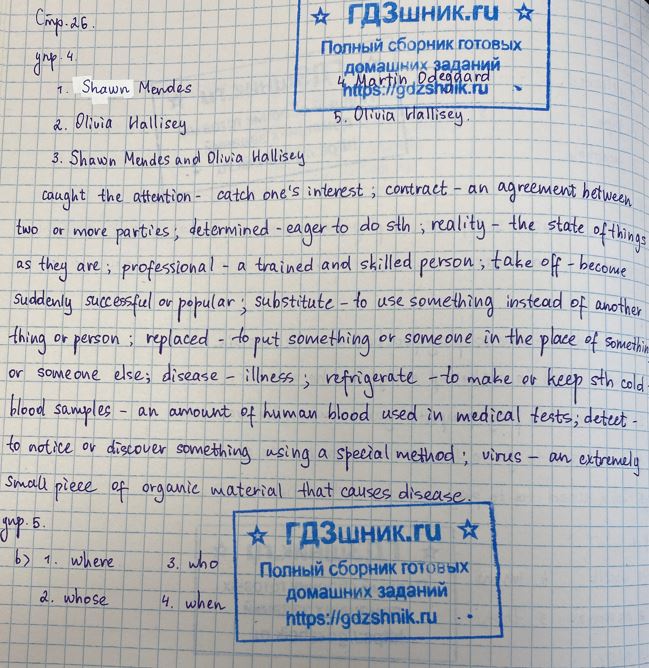 Стр. 26.
☆ ГДЗшник.ru ☆
Полный сборник готовых
домашних заданий
https://gdzshnik.ru
упр. 4.
1. Shawn Mendes
4. Martin Odegaard
2. Olivia Hallisey
5. Olivia Hallisey.
3. Shawn Mendes and Olivia Hallisey
caught the attention - catch one's interest ; contract - an agreement between
two or more parties; determined - eager to do sth ; reality - the state of things
as they are ; professional - a trained and skilled person ; take off - become
suddenly successful or popular ; substitute - to use something instead of another
thing or person ; replaced - to put something or someone in the place of somethin
or someone else; disease - illness ; refrigerate - to make or keep sth cold
blood samples - an amount of human blood used in medical tests; detect -
to notice or discover something using a special method ; virus - an extremely
small piece of organic material that causes disease.
упр. 5.
b) 1. where 3. who
2. whose 4. when
☆ ГДЗшник.ru ☆
Полный сборник готовых
домашних заданий
https://gdzshnik.ru